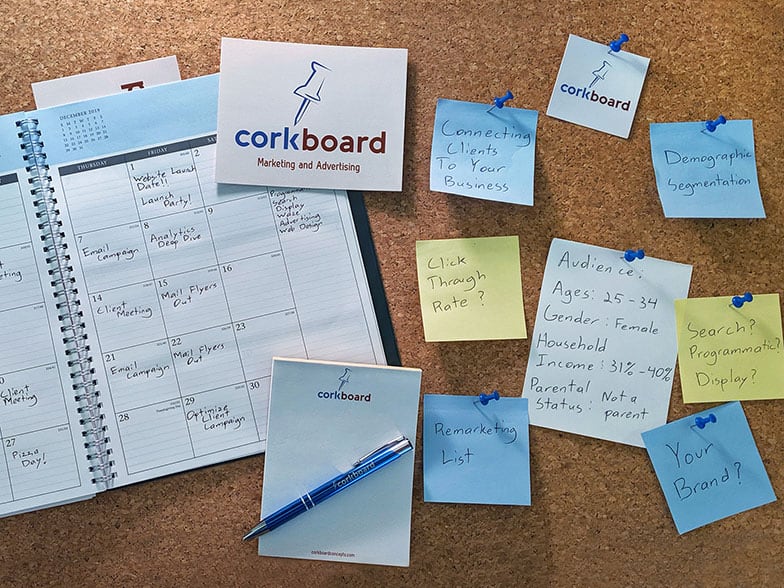 DECEMBER 2019
THURSDAY
FRIDAY
Website Launch
Date!!
Launch
Party!
2
Programmatic
Search
Display
Waze
Advertising
Web Design
7
Email
Campaign
8
Analytics
Deep Dive
9
Meeting
14
Client
Meeting
15
Mail Flyers
Out
16
21
Email
Campaign
22
Mail Flyers
Out
23
Client
Meeting
28
Thanksgiving Day
29
Optimize
Client
Campaign
30
27
Pizza
Day!
corkboard
Marketing and Advertising
corkboard
Connecting
Clients
To Your
Business
Demographic
Segmentation
Click
Through
Rate?
Audience:
Ages: 25-34
Gender: Female
Household
Income: 31%-40%
Parental
Status: Not a
parent
Search?
Programmatic?
Display?
Remarketing
List
Your
Brand?
corkboard
corkboard
corkboardconcepts.com